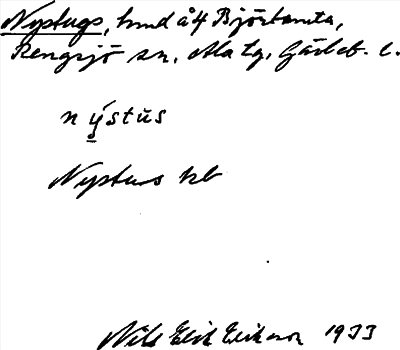 Nystugs, hmd å 4 Björtomta,
Rengsjö sn, Ala tg, Gävleb. l.
nýstu̇s
Nystus kb
Nils Erik Eriksson 1933